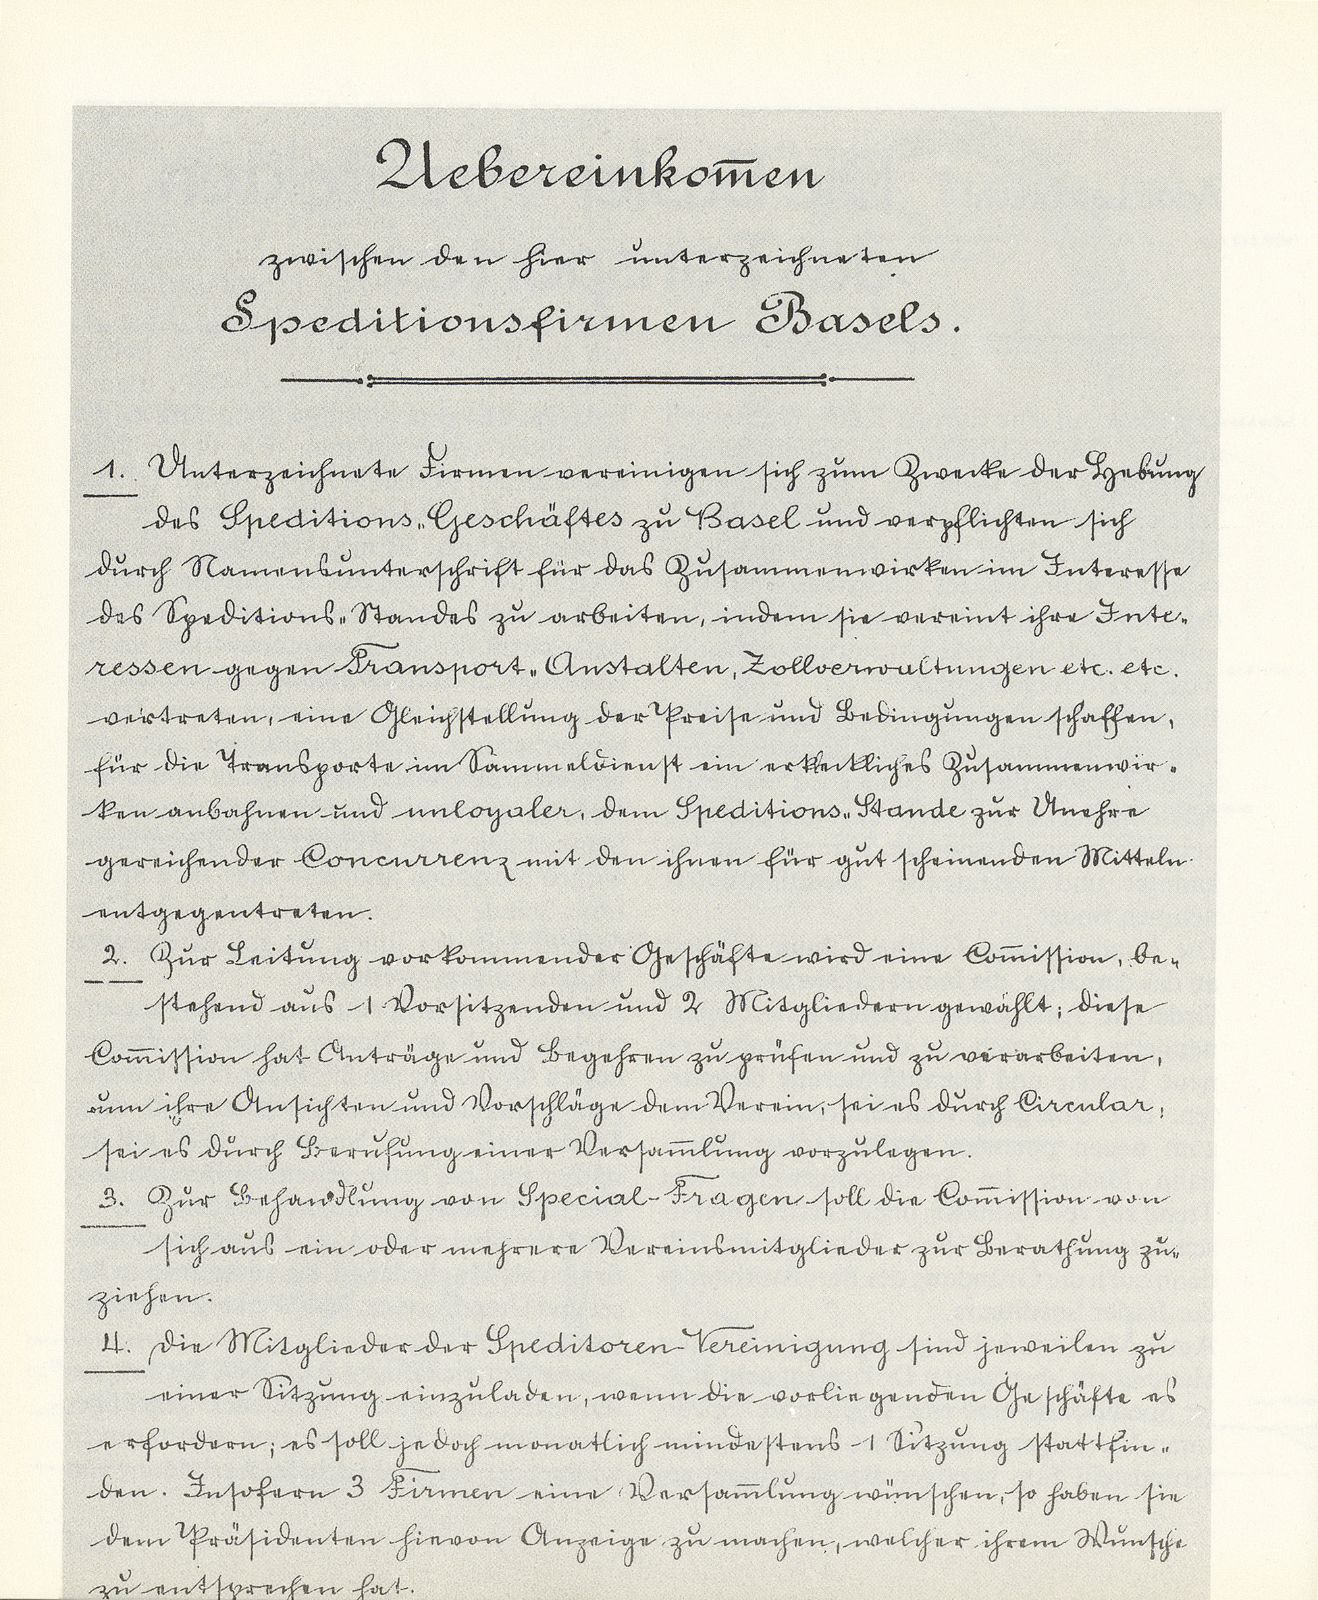 Uebereinkom̅en
zwischen den hier unterzeichneten
Speditionsfirmen Basels.
1. Unterzeichnete Firmen vereinigen sich zum Zwecke der Hebung
des Speditions-Geschäftes zu Basel und verpflichten sich
durch Namensunterschrift für das Zusammenwirken im Interesse
des Speditions-Standes zu arbeiten, indem sie vereint ihre Inte-
ressen gegen Transport-Anstalten, Zollverwaltungen etc. etc.
vertreten, eine Gleichstellung der Preise und Bedingungen schaffen,
für die Transporte im Sammeldienst ein erkleckliches Zusammenwir-
ken anbahnen und unloyaler, dem Speditions-Stande zur Unehre
gereichender Concurrenz mit den ihnen für gut scheinenden Mitteln
entgegentreten.
2. Zur Leitung vorkommender Geschäfte wird eine Com̅ission, be-
stehend aus 1 Vorsitzenden und 2 Mitgliedern gewählt; diese
Com̅ission hat Anträge und Begehren zu prüfen und zu verarbeiten,
um ihre Ansichten und Vorschläge dem Verein, sei es durch Circular,
sei es durch Berufung einer Versam̅lung vorzulegen.
3. Zur Behandlung von Special-Fragen soll die Com̅ission von
sich aus ein oder mehrere Vereinsmitglieder zur Berathung zu-
ziehen.
4. Die Mitglieder der Speditoren-Vereinigung sind jeweilen zu
einer Sitzung einzuladen, wenn die vorliegenden Geschäfte es
erfordern; es soll jedoch monatlich mindestens 1 Sitzung stattfin-
den. Insofern 3 Firmen eine Versam̅lung wünschen, so haben sie
dem Präsidenten hievon Anzeige zu machen, welcher ihrem Wunsche
zu entsprechen hat.